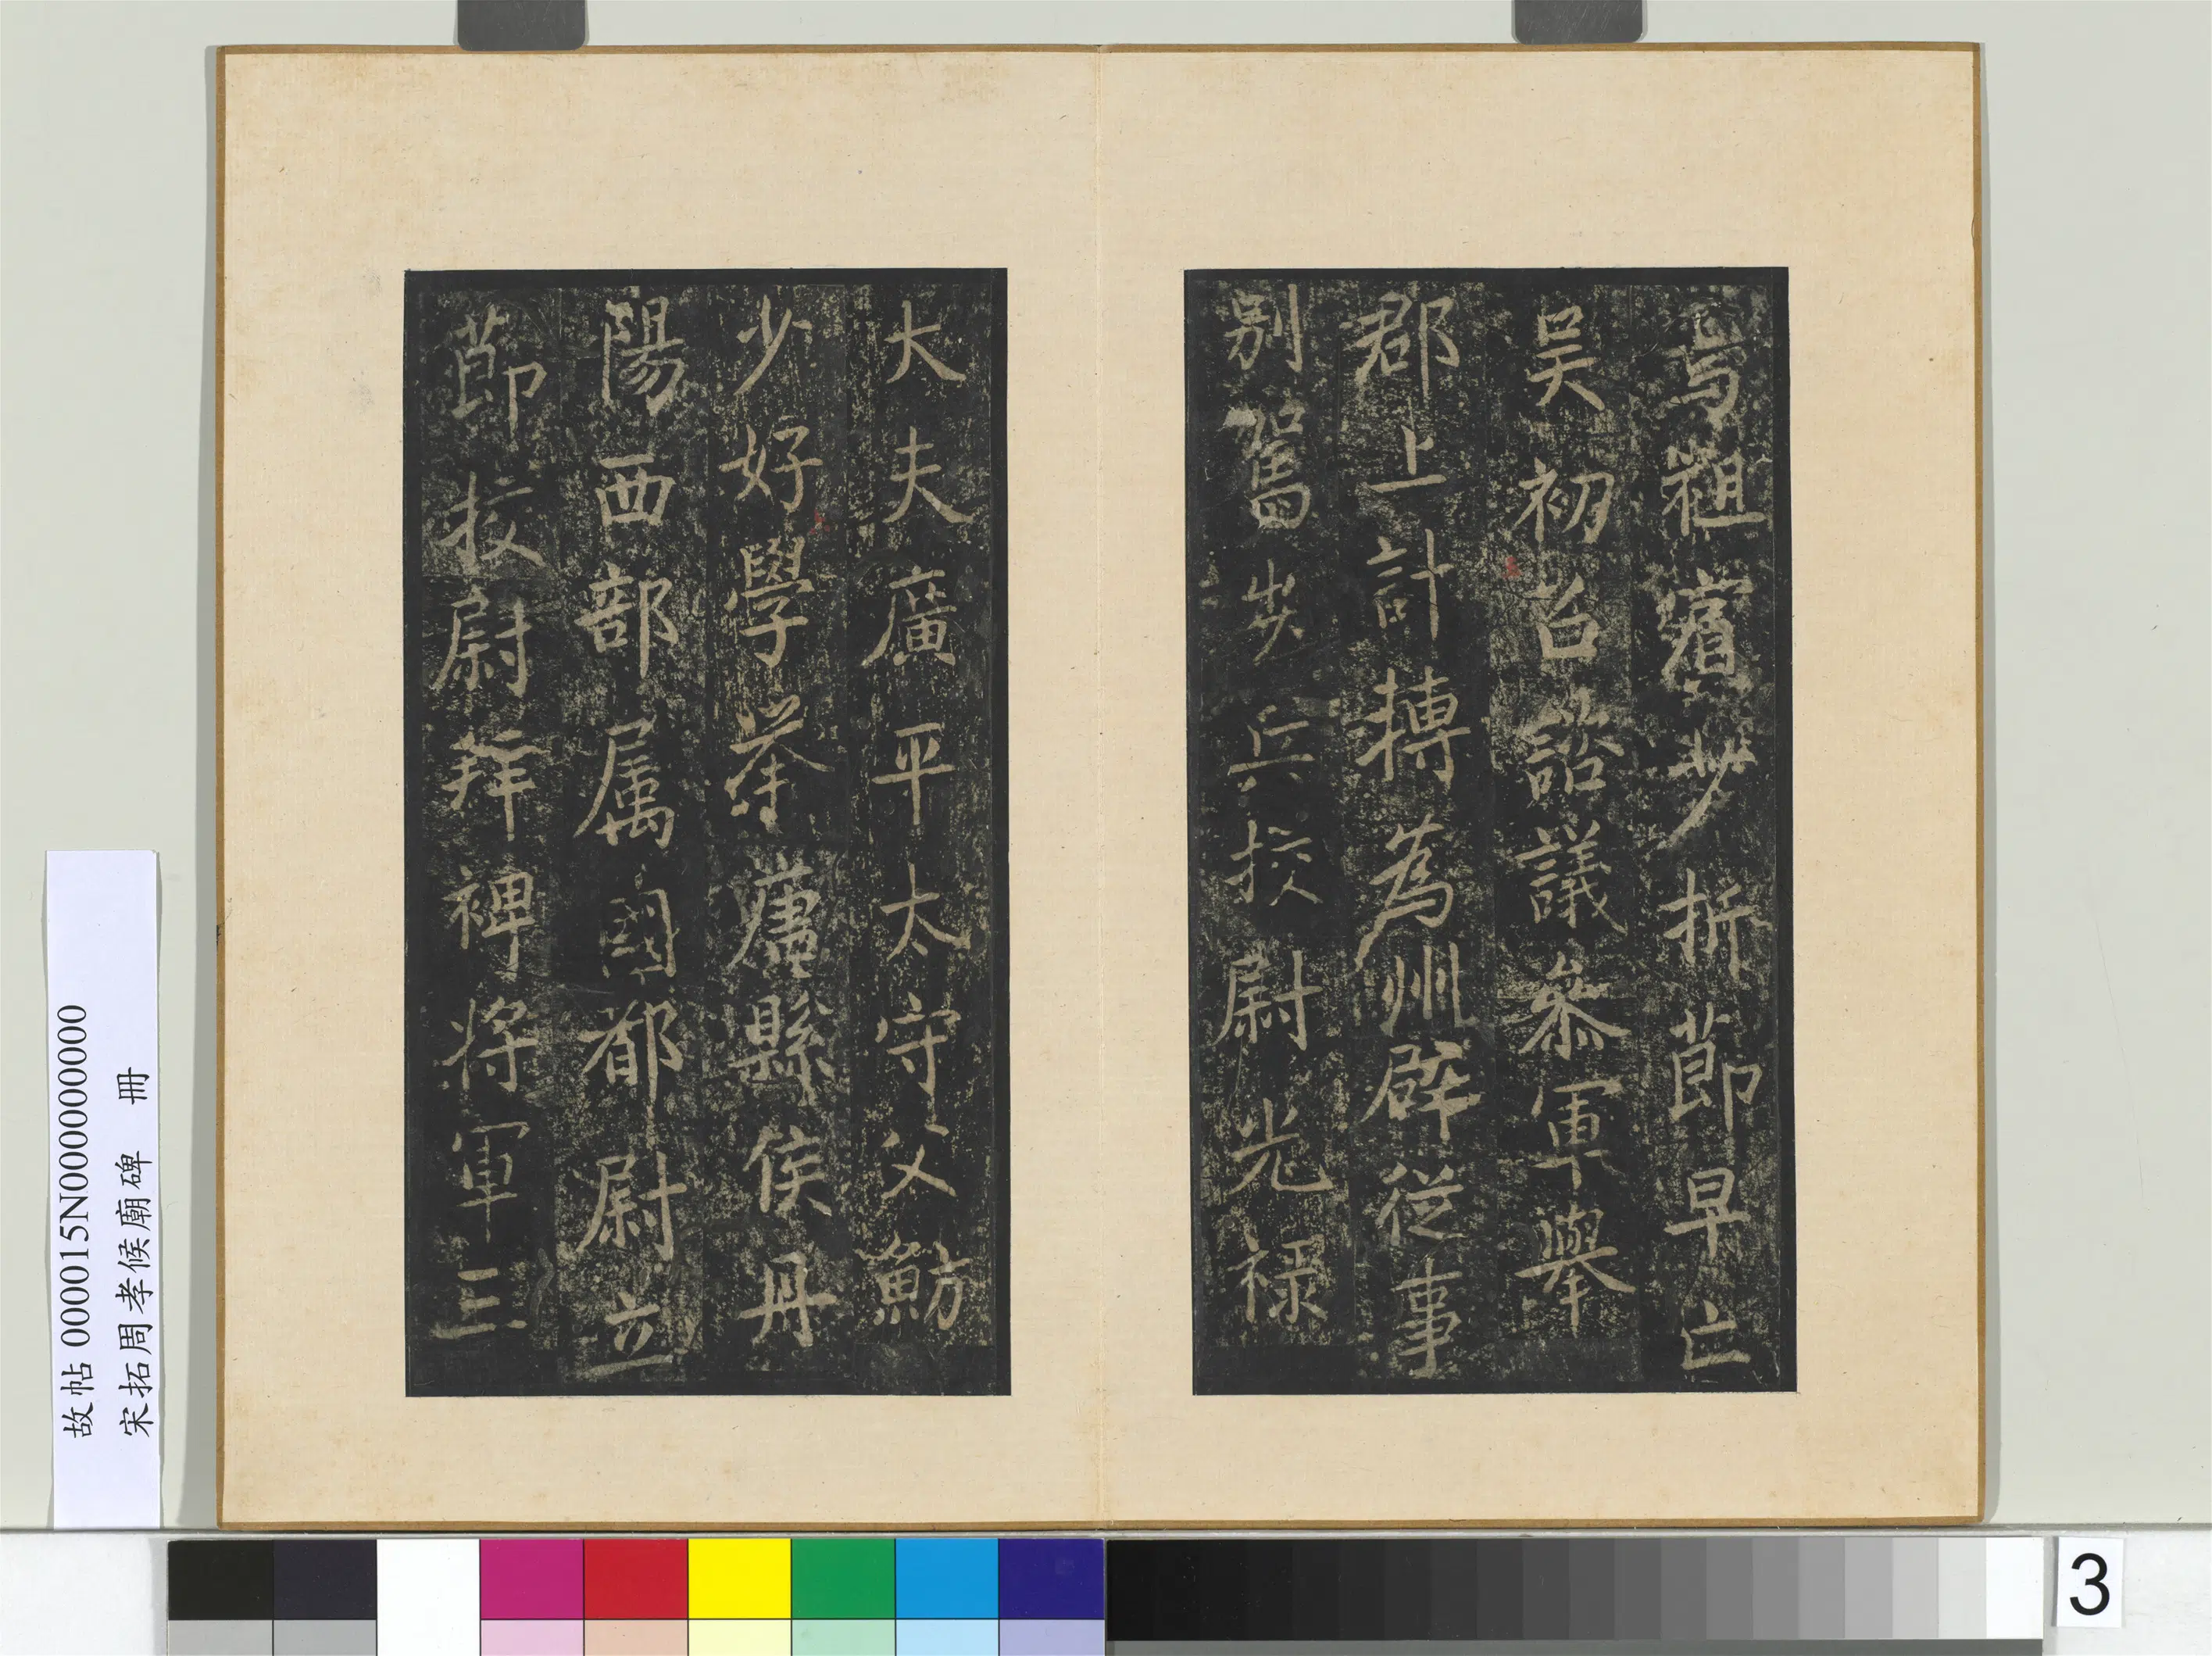 焉祖賓少折節早亡
吴初召諮議叅軍舉
郡上計轉為州辟従事
别駕步兵挍尉光禄
大夫廣平太守父魴
少好學举廉縣侯丹
陽西部属國都尉立
節挍尉拜裨将軍三
故帖 000015N000000000
宋拓周孝候廟碑 冊
3